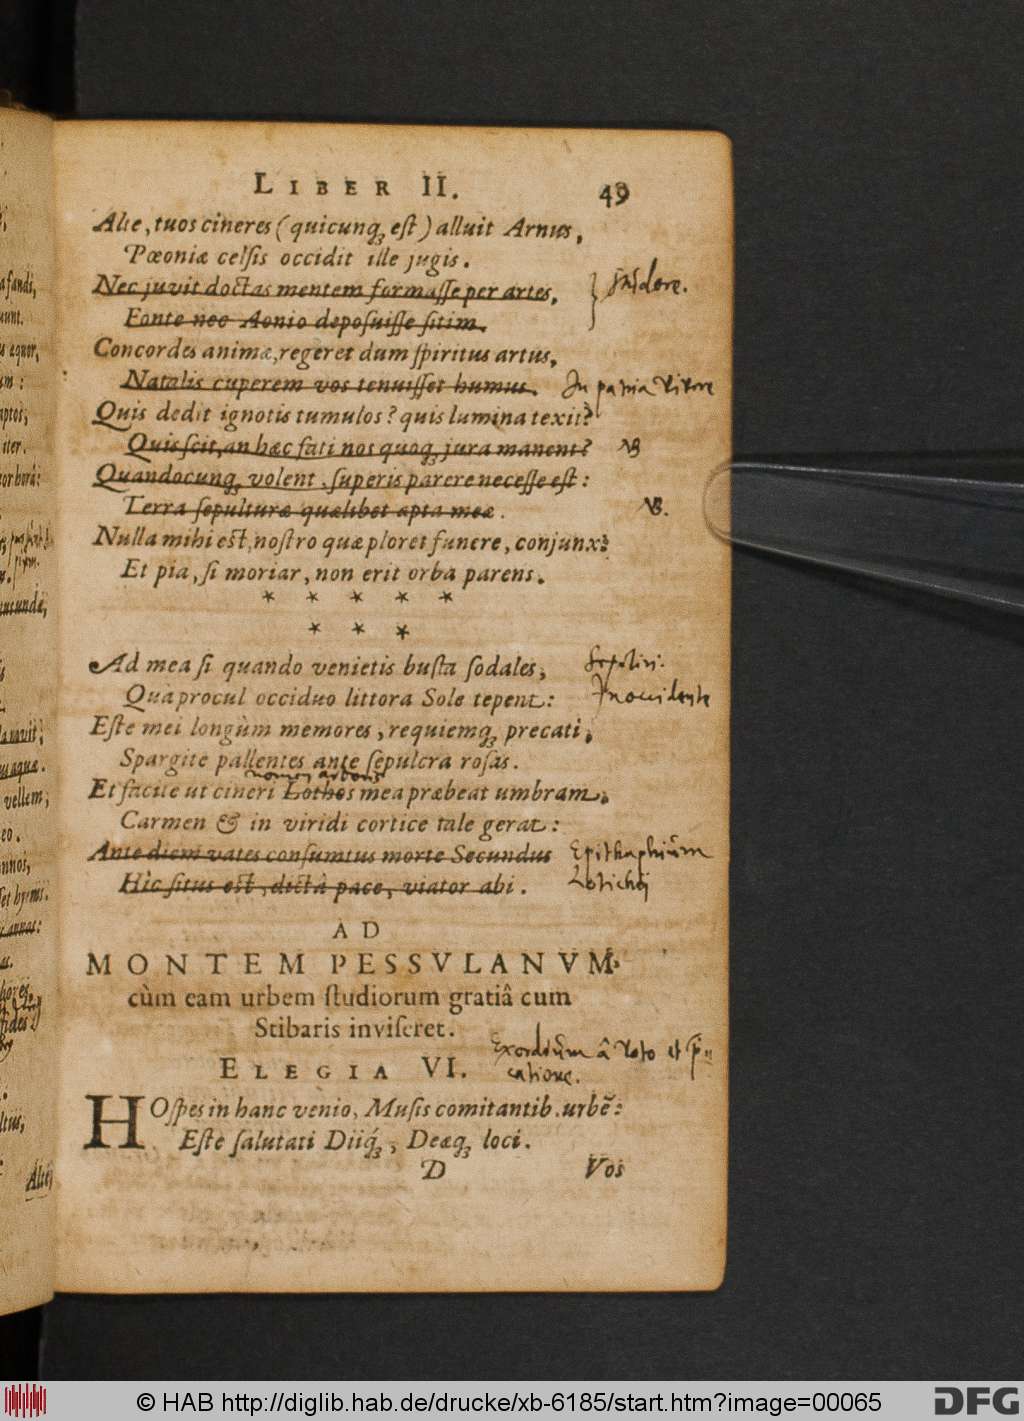 LIBER II. 49
Alte, tuos cineres (quicunq́ꝫ est) alluit Arnus,
Pœoniæ celsis occidit ille jugis.
Nec juvit doctas mentem formasse per artes,
Fonte nec Aonio deposuisse sitim.
Concordes animæ, regeret dum spiritus artus,
Natalis cuperem vos tenuisset humus. In patria vivere
Quis dedit ignotis tumulos? quis lumina texit?
Quis scit, an hæc fati nos quoqꝫ jura manent? NB
Quandocunqꝫ volent, superis parere necesse est:
Terra sepulturæ quælibet apta meæ. NB.
Nulla mihi est, nostro quæ ploret funere, conjunx:
Et pia, si moriar, non erit orba parens.
* * * * *
* * *
Ad mea si quando venietis busta sodales, Sepeliri.
Qua procul occiduo littora Sole tepent: In occidente
Este mei longùm memores, requiemqꝫ precati,
Spargite pallentes ante sepulcra rosas.
nomen arboris
Et facite ut cineri Lothos mea præbeat umbram,
Carmen & in viridi cortice tale gerat:
Ante diem vates consumtus morte Secundus Epithaphium
Hìc situs est, dictâ pace, viator abi. Lotichij
AD
MONTEM PESSVLANVM,
cùm eam urbem studiorum gratiâ cum
Stibaris inviseret.
Exordium â Voto et
catione.
ELEGIA VI.
HOspes in hanc venio, Musis comitantib. urbē:
Este salutati Diiq́ꝫ, Deæqꝫ loci.
D Vos
afandi,
æquor,
aptos,
iter.
vellem,
annos,
Alte,
© HAB http://diglib.hab.de/drucke/xb-6185/start.htm?image=00065
DFG